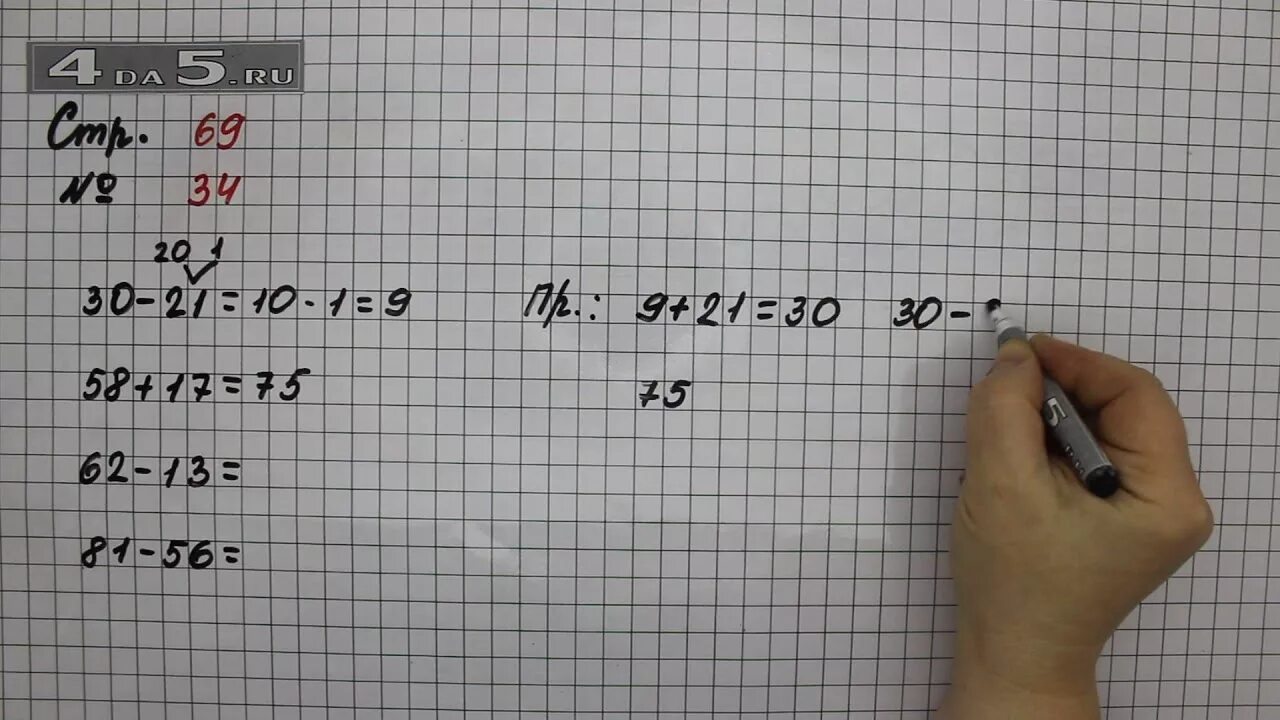 4DA5.RU
Стр. 69
№ 34
20 1
30-21=10-1=9 Пр.: 9+21=30 30-
58+17=75 75
62-13=
81-56=
5